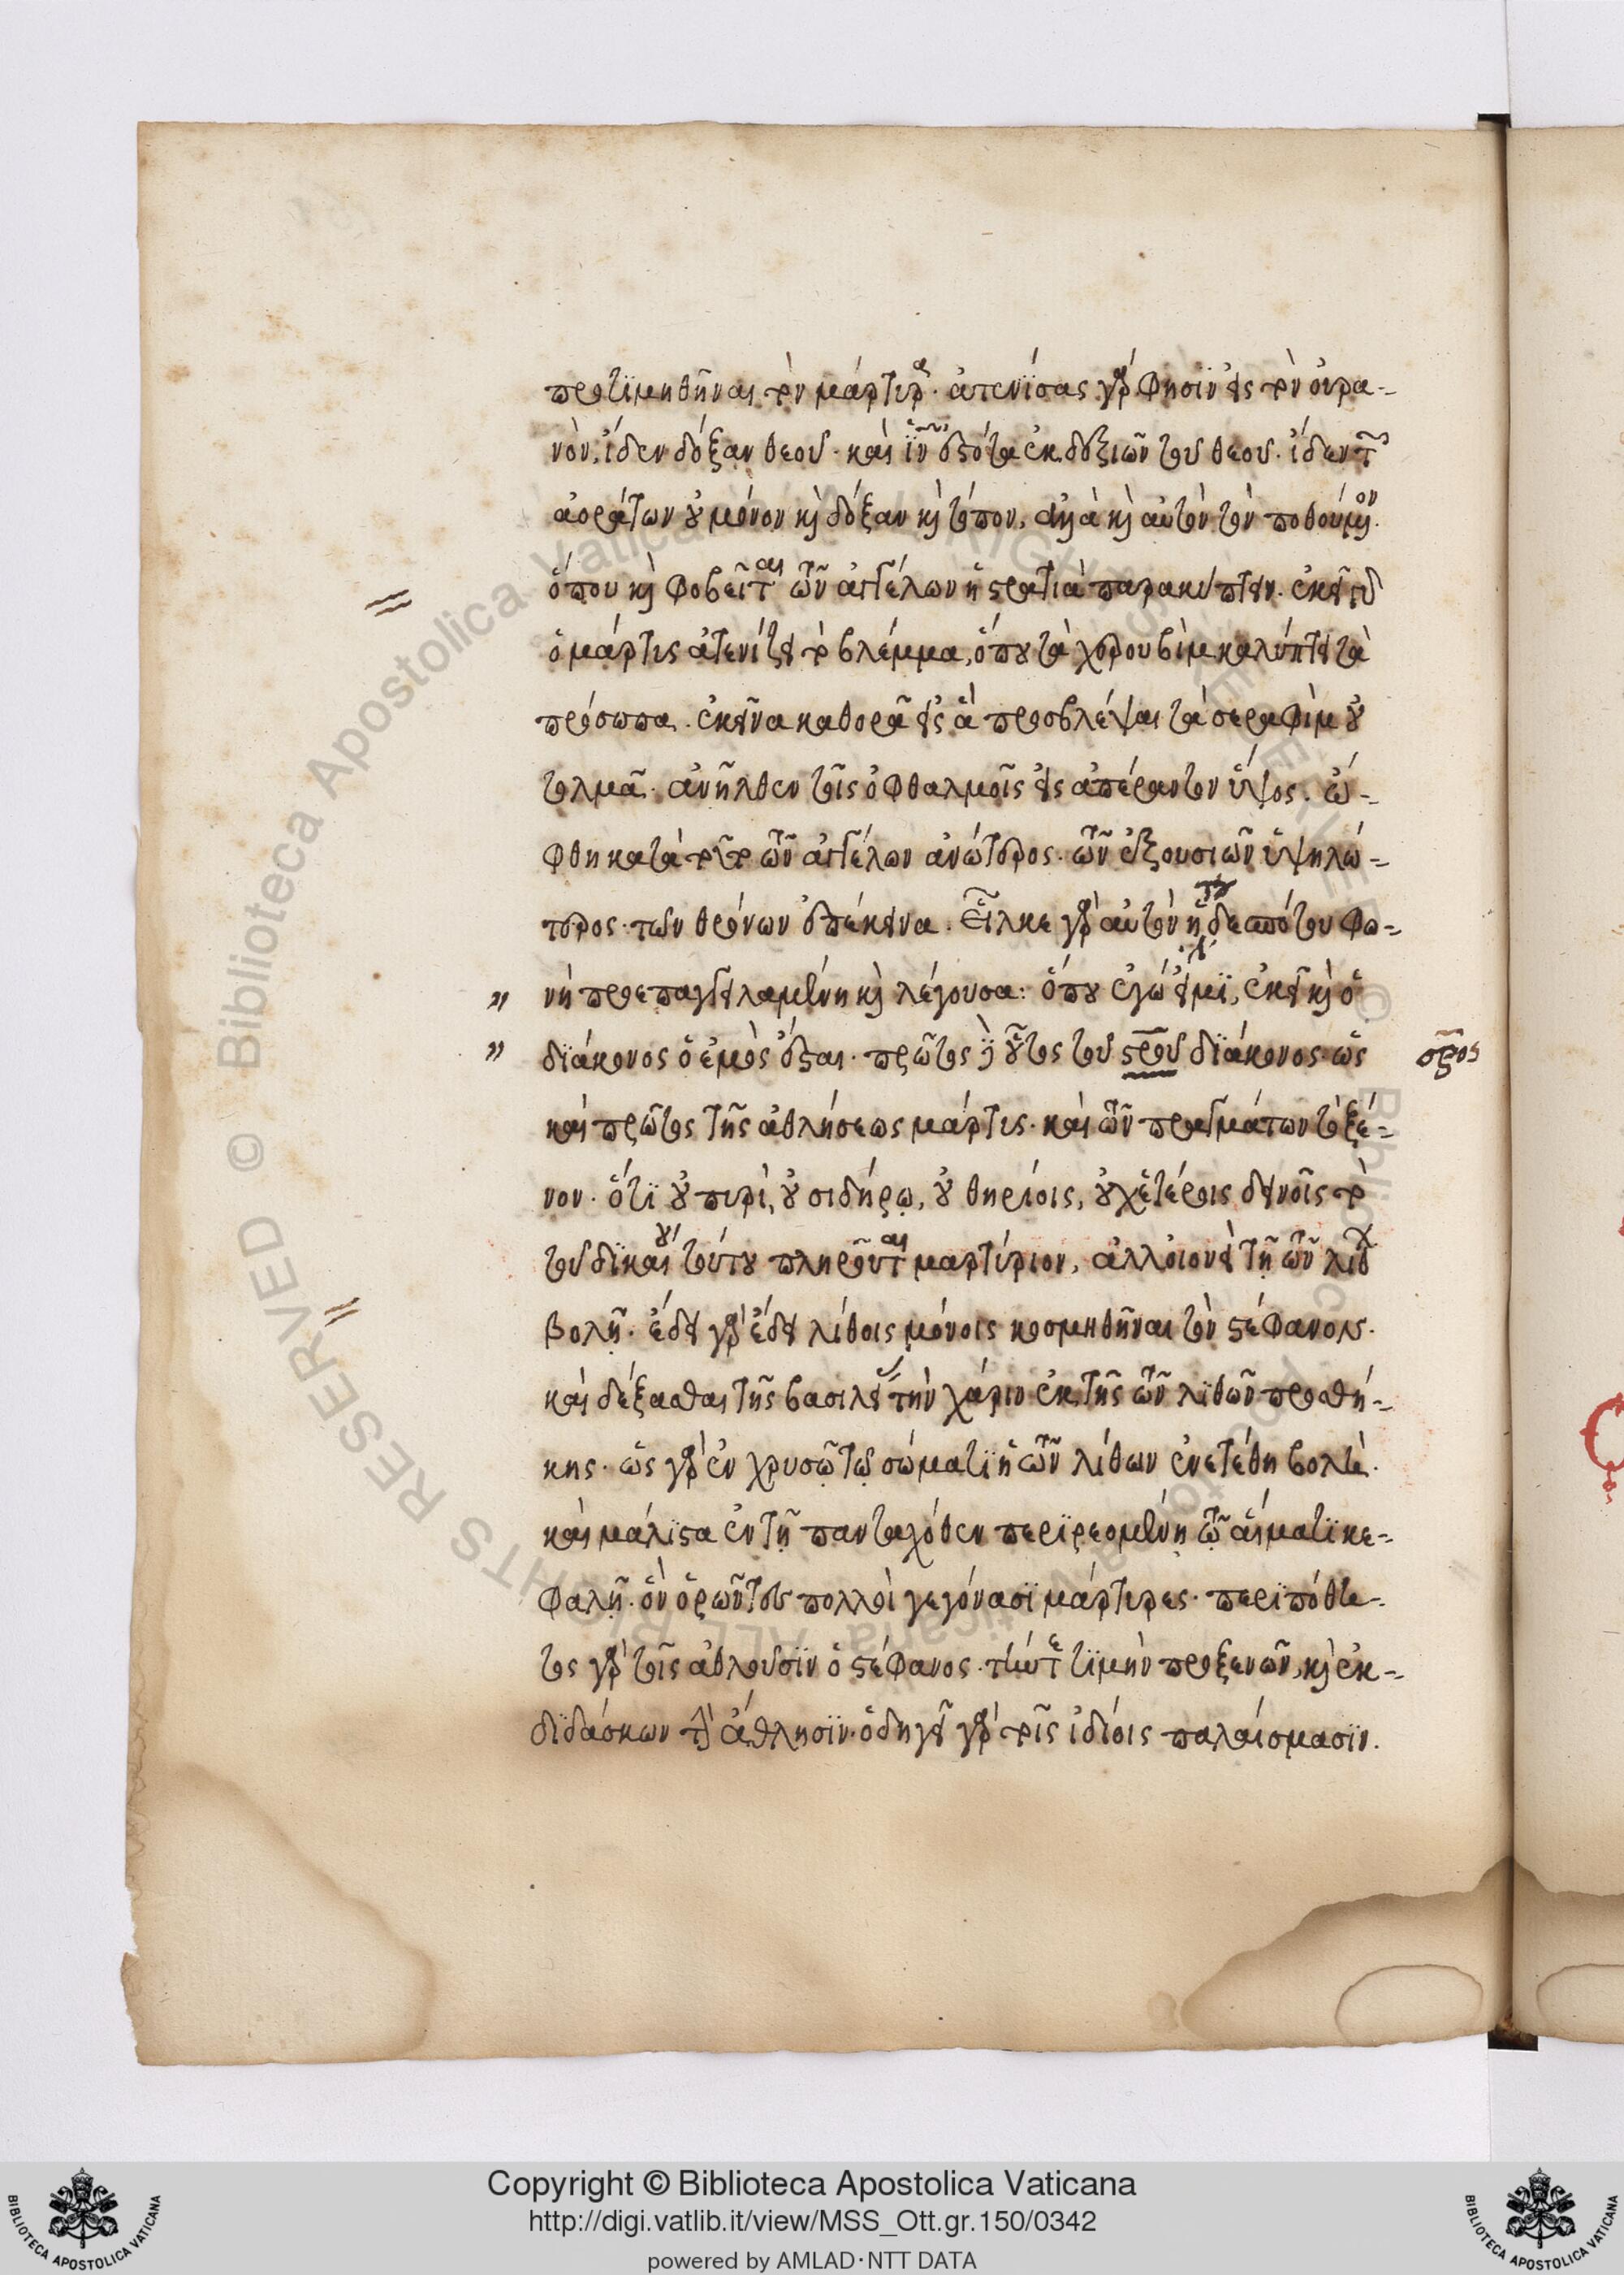 προτϊμηθῆναι τὸν μάρτυρα· ἀτενίσας γὰρ φησὶν εἰς τὸν οὐρα-
νὸν, ἴδεν δόξαν θεοῦ· καὶ ἰν ἑστῶτα ἐκ δεξιῶν τοῦ θεοῦ. ἴδεν τῶν
ἀοράτων οὐ μόνον καὶ δόξαν καὶ τόπον, ἀλλὰ καὶ αὐτὸν τὸν ποθούμενον.
ὅπου καὶ φοβεῖται τῶν ἀγγέλων ἡ στρατιὰ παρακύπτειν. ἐκεῖ
ὁ μάρτυς ἀτενίζει τὸ βλέμμα, ὅπου τὰ χερουβὶμ καλύπτει τὰ
πρόσωπα. ἐκεῖνα καθορᾶ εἰς ἃ προσβλέψαι τὰ σεραφὶμ οὐ
τολμᾶ. ἀνῆλθεν τοῖς ὀφθαλμοῖς εἰς ἀπέραντον ὕψος. ὤ-
φθη κατὰ τοῦτο τῶν ἀγγέλων ἀνώτερος· τῶν ἐξουσιῶν ὑψηλό-
τερος· τῶν θρόνων ἐπέκεινα. εἷλκε γὰρ αὐτὸν ἡ τοῦ δεσπότου φω-
νὴ προεπαγγειλαμένη καὶ λέγουσα: ὅπου ἐγὼ εἰμϊ, ἐκεῖ καὶ ὁ
δϊάκονος ὁ ἐμὸς ἔσται. πρῶτος δὲ οὗτος τοῦ σρου δϊάκονος ὡς
σρος
καὶ πρῶτος τῆς ἀθλήσεως μάρτυς. καὶ τῶν πραγμάτων τὸ ξέ-
νον. ὅτϊ οὐ πυρὶ, οὐ σιδήρῳ, οὐ θηρίοις, οὐχ ἑτέροις δεινοῖς τὸ
τοῦ δϊκαίου τούτου πληροῦται μαρτύριον, ἀλλ' οἱονεὶ τῇ τῶν λίθων
βολῇ. ἔδει γὰρ ἔδει λίθοις μόνοις κοσμηθῆναι τὸν στέφανον.
καὶ δέξασθαι τῆς βασιλείας τὴν χάριν ἐκ τῆς τῶν λϊθῶν προσθή-
κης. ὡς γὰρ ἐν χρυσῷ τῷ σώματϊ ἡ τῶν λίθων ἐνετέθη βολή.
καὶ μάλιστα ἐν τῇ πανταχόθεν περϊρεομένῃ τῷ αἵματϊ κε-
φαλῇ. ὃν ὁρῶντες πολλοὶ γεγόνασϊ μάρτυρες. περϊπόθη-
τος γὰρ τοῖς ἀθλοῦσϊν ὁ στέφανος. τήν τε τϊμὴν προξενῶν, καὶ ἐκ-
δϊδάσκων τὴν ἄθλησϊν. ὁδηγεῖ γὰρ τοῖς ἰδίοις παλαίσμασϊν.
Copyright © Biblioteca Apostolica Vaticana
http://digi.vatlib.it/view/MSS_Ott.gr.150/0342
powered by AMLAD·NTT DATA